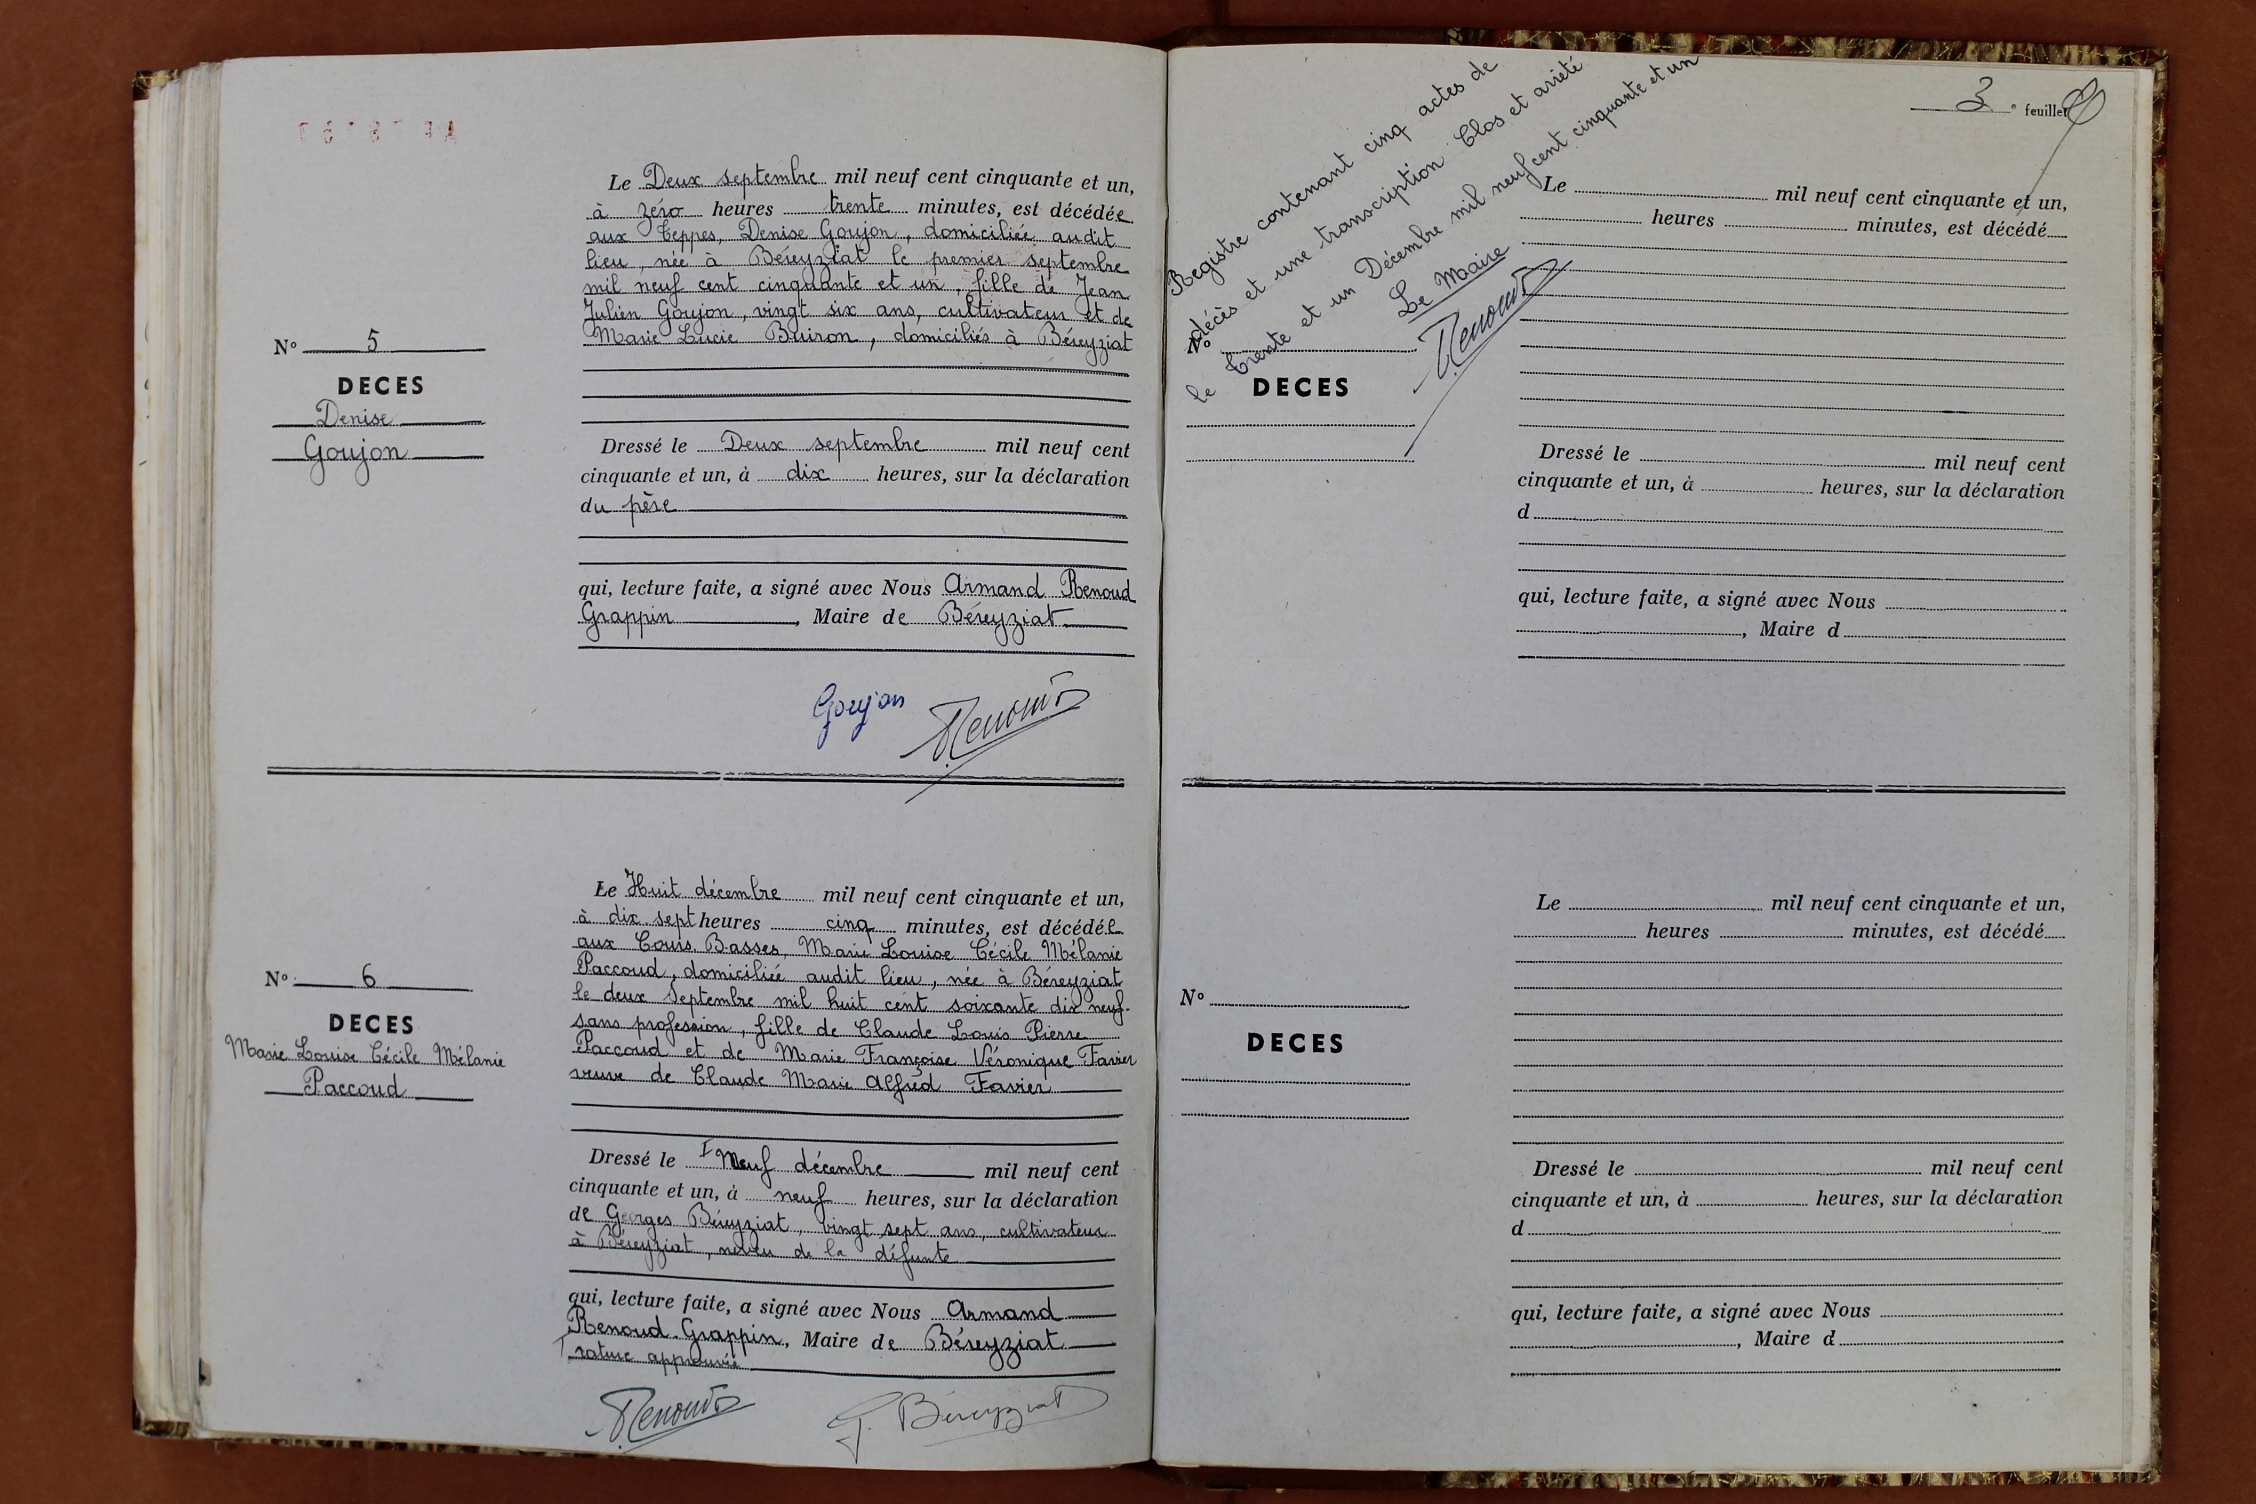 Le Deux septembre mil neuf cent cinquante et un,
à zéro heures trente minutes, est décédée
aux Teppes, Denise Goujon, domiciliée audit
lieu, née à Béreyziat le premier septembre
mil neuf cent cinquante et un, fille de Jean
Julien Goujon, vingt six ans, cultivateur et de
Marie Lucie Buiron, domiciliés à Béreyziat
N° 5
DECES
Denise
Goujon
Dressé le Deux septembre mil neuf cent
cinquante et un, à dix heures, sur la déclaration
du père
qui, lecture faite, a signé avec Nous Armand Renoud
Grappin, Maire de Béreyziat
Goujon Renoud
Le Huit décembre mil neuf cent cinquante et un,
à dix sept heures cinq minutes, est décédée
aux Cours Basses, Marie Louise Cécile Mélanie
Paccoud, domiciliée audit lieu, née à Béreyziat
le deux septembre mil huit cent soixante dix neuf
sans profession, fille de Claude Louis Pierre
Paccoud et de Marie Françoise Véronique Favier
veuve de Claude Marie Alfred Favier
N° 6
DECES
Marie Louise Cécile Mélanie
Paccoud
Dressé le Neuf décembre mil neuf cent
cinquante et un, à neuf heures, sur la déclaration
de Georges Béreyziat, vingt sept ans, cultivateur
à Béreyziat, neveu de la défunte
qui, lecture faite, a signé avec Nous Armand
Renoud-Grappin, Maire de Béreyziat
rature approuvée
Renoud G. Béreyziat
3e feuillet
Registre contenant cinq actes de
décès et une transcription Clos et arrêté
le trente et un Décembre mil neuf cent cinquante et un
Le Maire
Renoud
Le mil neuf cent cinquante et un,
heures minutes, est décédé
N°
DECES
Dressé le mil neuf cent
cinquante et un, à heures, sur la déclaration
d
qui, lecture faite, a signé avec Nous
, Maire d
Le mil neuf cent cinquante et un,
heures minutes, est décédé
N°
DECES
Dressé le mil neuf cent
cinquante et un, à heures, sur la déclaration
d
qui, lecture faite, a signé avec Nous
, Maire d